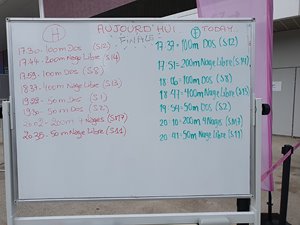 H AUJOURD'HUI F TODAY
FINALE
17.30 - 100m Dos (S12)
17.44 - 200m Nage Libre (S14)
17.59 - 100m Dos (S8)
18.37 - 400m Nage Libre (S13)
19.38 - 50m Dos (S1)
19.50 - 50m Dos (S2)
20.02 - 200m 4 Nages (SM7)
20.35 - 50m Nage Libre (S11)
17.37 = 100m Dos (S12)
17.51 = 200m Nage Libre (S14)
18.06 = 100m Dos (S8)
18.47 = 400m Nage Libre (S13)
19.54 = 50m Dos (S2)
20.10 = 200m 4 Nages (SM7)
20.41 = 50m Nage Libre (S11)